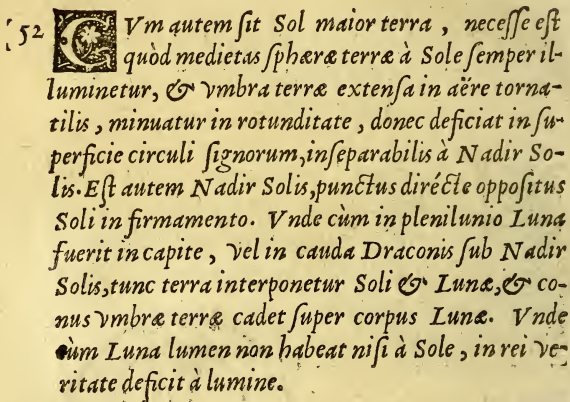 [52 CVm autem ſit Sol maior terra, neceſſe eſt
quòd medietas ſphæræ terræ à Sole ſemper il-
luminetur, & vmbra terræ extenſa in aëre torna-
tilis, minuatur in rotunditate, donec deficiat in ſu-
perficie circuli ſignorum, inſeparabilis à Nadir So-
lis. Eſt autem Nadir Solis, punctus diréctè oppoſitus
Soli in firmamento. Vnde cùm in plenilunio Luna
fuerit in capite, vel in cauda Draconis ſub Nadir
Solis, tunc terra interponetur Soli & Lunæ, & co-
nus vmbræ terrę cadet ſuper corpus Lunæ. Vnde
cùm Luna lumen non habeat niſi à Sole, in rei ve-
ritate deficit à lumine.